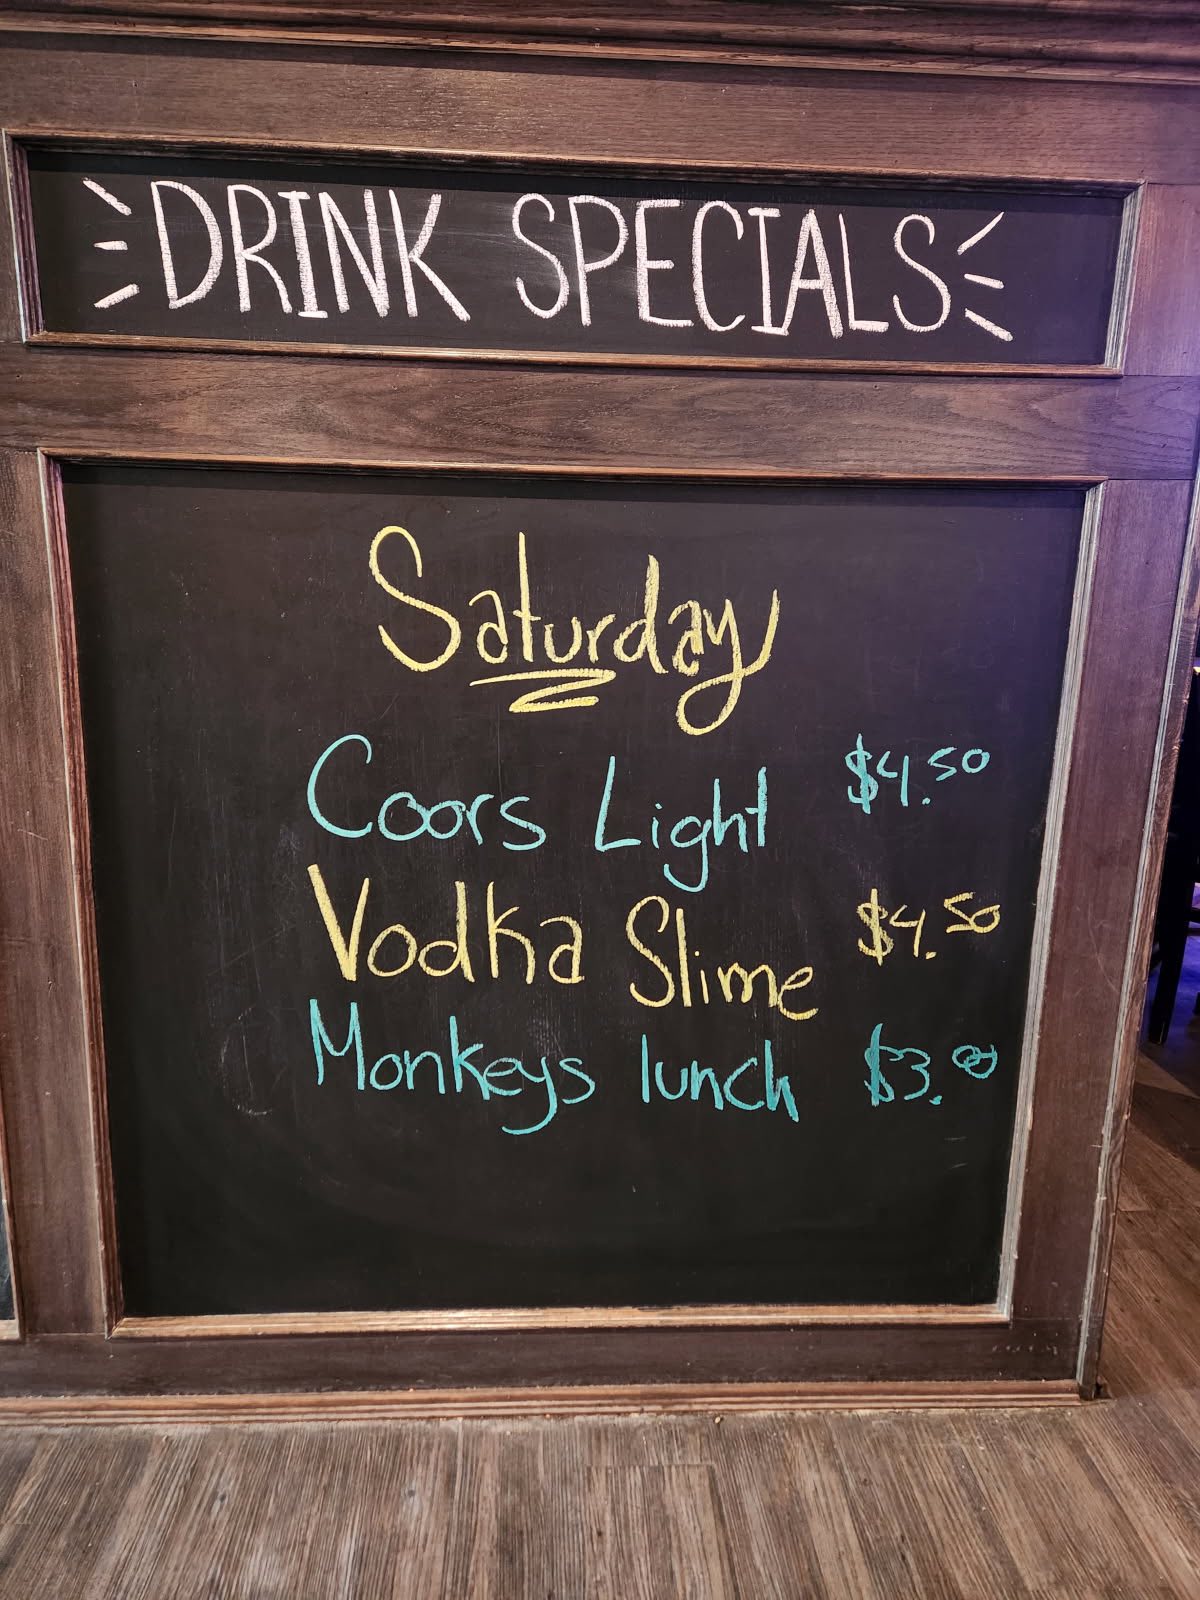 DRINK SPECIALS
Saturday
Coors Light $4.50
Vodka Slime $4.50
Monkeys lunch $3.00